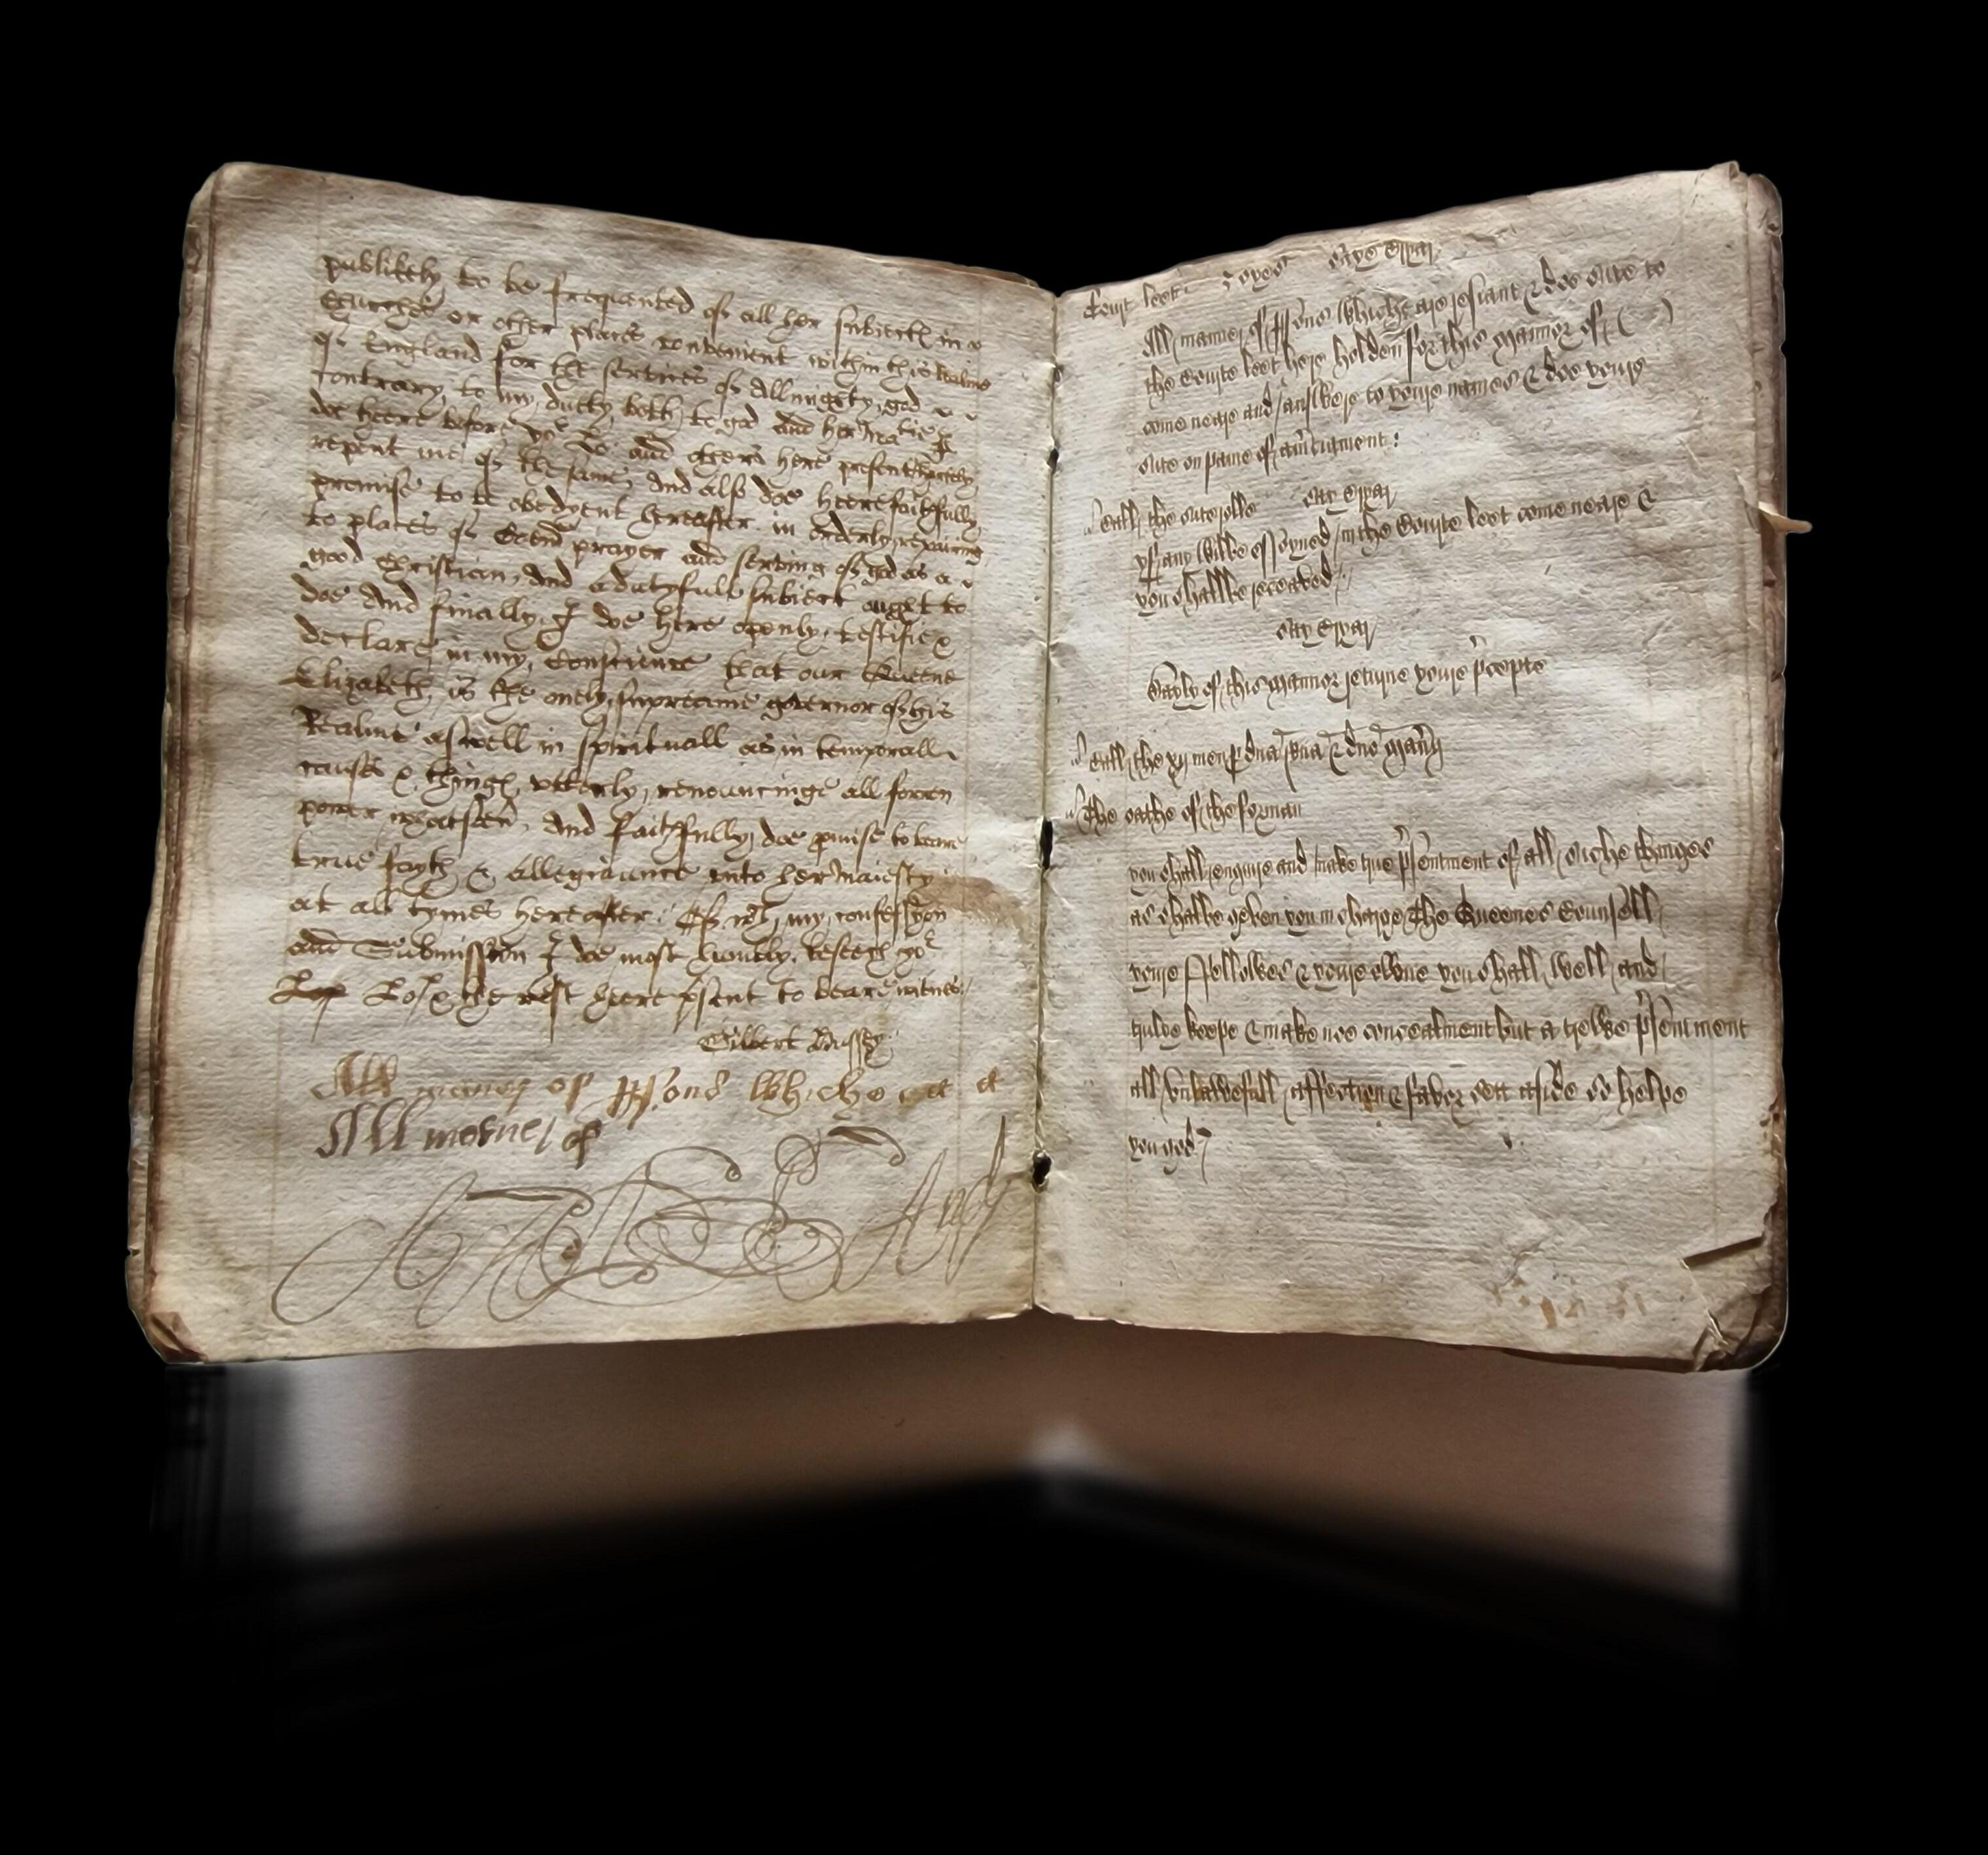 publikely to be frequented of all her subiectes in
Churches or other places convenient within this Realme
of England for the services of Allmighty god
contrary to my duety both to god and her Matie I
doe heere before yor Lo and others here present hartely
repent me of the same, and also doe heere faithfully
promise to be obedyent hereafter in orderly repairing
to places of Comon prayer and serving of god as a
good Christian, and a dutyfull subiect ought to
doe And finally I doe here openly testifie &
declare in my Conscience that our Queene
Elizabeth is the onely supreame governor of this
Realme aswell in spirituall as in temporall
causes & thinges utterly renouncinge all forren
power whatsoever, and faithfully doe promise to beare
true fayth & allegiaunce unto her Maiesty
at all tymes hereafter. Of wch my confessyon
and Submission I doe most humbly beseech yor
Lop Lo: & the rest heere psent to beare witnes.
Gilbert Bussey
All maner of psons Whiche
All maner of
And
Court leet 3 oyes saye
All manner of psons Whiche are resiant & doe suite to
the Courte leet here holden for this mannor of ( )
come neare and answere to youre names & doe youre
suite on paine of amerciament:
Call the suite rolle
yf any Wilbe essoyned in the Courte leet come neare &
you shalbe receaved

Bayly of this mannor returne youre precepte
Call the xij men p dna Rna & dno Manerij
The oathe of the forman
you shall enquire and make true psentment of all suche thinges
as shalbe geven you in charge The Queenes Counsell
youre ffellowes & youre owne you shall well and
truly keepe & make noe concealment but a trewe psentment
all unlawefull affection & favor sett aside so helpe
you god